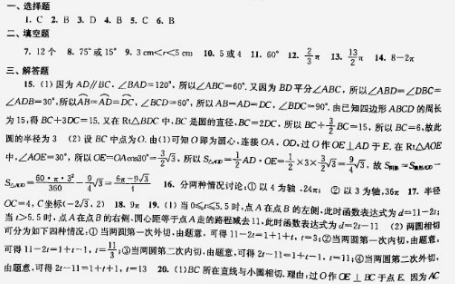 一、选择题
1. C 2. B 3. D 4. B 5. C 6. B
二、填空题
7. 12个 8. 75°或15° 9. 3 cm<r<5 cm 10. 5或4 11. 60° 12. 2/3 π 13. 13/2 π 14. 8-2π
三、解答题
15. (1) 因为AD∥BC, ∠BAD=120°, 所以∠ABC=60°. 又因为BD平分∠ABC, 所以∠ABD=∠DBC=
∠ADB=30°, 所以AB=AD=DC, ∠BCD=60°, 所以AB=AD=DC, ∠BDC=90°. 由已知四边形ABCD的周长
为15, 得BC+3DC=15. 又在Rt△BDC中, BC是圆的直径, BC=2DC, 所以BC+3/2 BC=15, 所以BC=6, 故此
圆的半径为3 (2) 设BC中点为O. 由(1)可知O即为圆心, 连接OA, OD, 过O作OE⊥AD于E. 在Rt△AOE
中, ∠AOE=30°, 所以OE=OAcos30°=3/2√3, 所以S△AOD=1/2 AD·OE=1/2×3×3/2√3=9/4√3, 故S阴影=S扇形AOD-
S△AOD=60·π·3²/360-9/4√3=6π-9√3/4 16. 分两种情况讨论: ① 以4为轴, 24π; ② 以3为轴, 36π 17. 半径
OC=4, C坐标(-2√3, 2) 18. 9π 19. (1) 当0≤t≤5.5时, 点A在点B的左侧, 此时函数表达式为d=11-2t;
当t>5.5时, 点A在点B的右侧, 圆心距等于点A走的路程减去11, 此时函数表达式为d=2t-11 (2) 两圆相切
可分为如下四种情况: ① 当两圆第一次外切, 由题意, 可得11-2t=1+1+t, t=3; ② 当两圆第一次内切, 由题意,
可得11-2t=1+t-1, t=11/3; ③ 当两圆第二次内切, 由题意, 可得2t-11=1+t-1, t=11; ④ 当两圆第二次外切,
由题意, 可得2t-11=1+t+1, t=13 20. (1) BC所在直线与小圆相切. 理由: 过O作OE⊥BC于点E. 因为AC